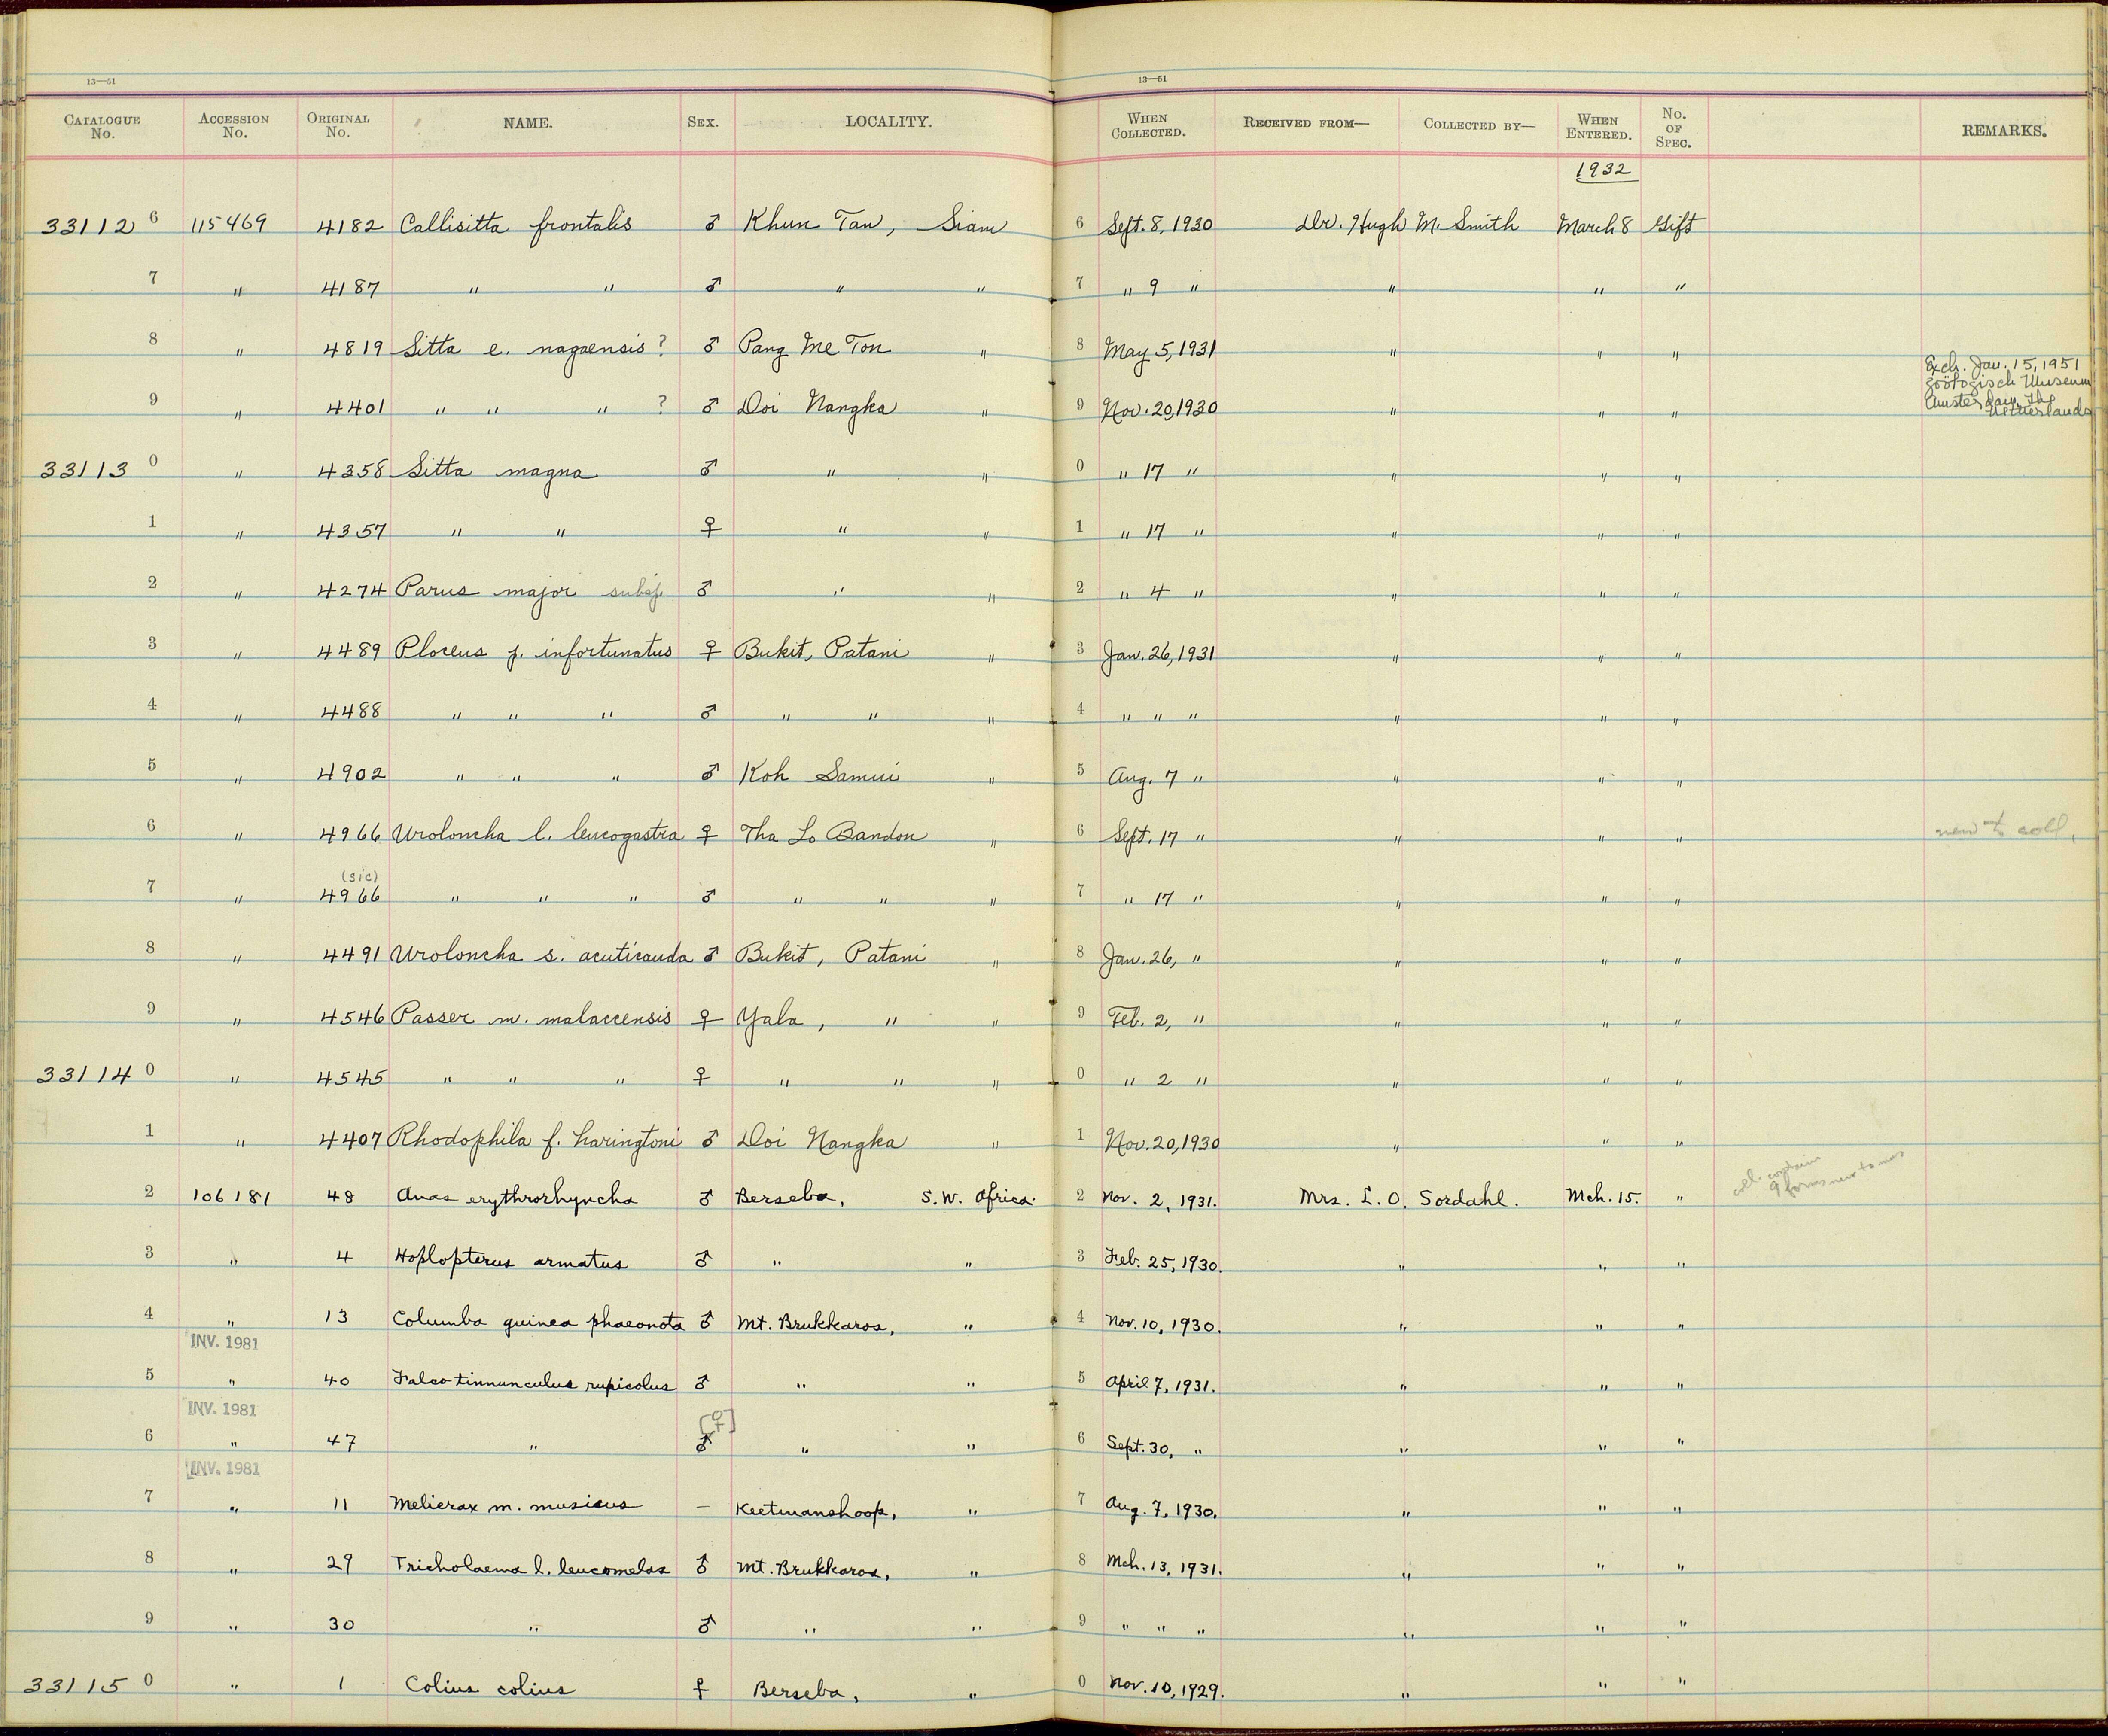 13—51 13—51
CATALOGUE No. ACCESSION No. ORIGINAL No. NAME. SEX. LOCALITY. WHEN COLLECTED. RECEIVED FROM— COLLECTED BY— WHEN ENTERED. No. OF SPEC. REMARKS.
1932
33112 6 115469 4182 Callisitta frontalis ♂ Khun Tan, Siam 6 Sept. 8, 1930 Dr. Hugh M. Smith March 8 Gift
7 " 4187 " " ♂ " " 7 " 9 " " " "
8 " 4819 Sitta e. nagaensis ? ♂ Pang Me Ton " 8 May 5, 1931 " " "
9 " 4401 " " " ? ♂ Doi Nangka " 9 Nov. 20, 1930 " " " Exch. Jan. 15, 1951
Zoölogisch Museum
Amsterdam, The
Netherlands
33113 0 " 4358 Sitta magna ♂ " " 0 " 17 " " " "
1 " 4357 " " ♀ " " 1 " 17 " " " "
2 " 4274 Parus major subsp. ♂ " " 2 " 4 " " " "
3 " 4489 Ploceus p. infortunatus ♀ Bukit, Patani " 3 Jan. 26, 1931 " " "
4 " 4488 " " " ♂ " " " 4 " " " " " "
5 " 4902 " " " ♂ Koh Samui " 5 Aug. 7 " " " "
6 " 4966 Uroloncha l. leucogastra ♀ Tha Lo Bandon " 6 Sept. 17 " " " " new to coll.
(sic)
7 " 4966 " " " ♂ " " " 7 " 17 " " " "
8 " 4491 Uroloncha s. acuticauda ♂ Bukit, Patani " 8 Jan. 26, " " " "
9 " 4546 Passer m. malaccensis ♀ Yala, " " 9 Feb. 2, " " " "
33114 0 " 4545 " " " ♀ " " " 0 " 2 " " " "
1 " 4407 Rhodophila f. haringtoni ♂ Doi Nangka " 1 Nov. 20, 1930 " " "
2 106181 48 Anas erythrorhyncha ♂ Berseba, S.W. Africa. 2 Nov. 2, 1931. Mrs. L. O. Sordahl. Mch. 15. " coll. contain
9 forms new to
3 " 4 Hoplopterus armatus ♂ " " 3 Feb. 25, 1930. " " "
4 " 13 Columba guinea phaeonota ♂ Mt. Brukkaros, " 4 Nov. 10, 1930. " " "
INV. 1981
5 " 40 Falco tinnunculus rupicolus ♂ " " 5 April 7, 1931. " " "
INV. 1981
[♀]
6 " 47 " ♂ " " 6 Sept. 30, " " " "
INV. 1981
7 " 11 Melierax m. musicus – Keetmanshoop, " 7 Aug. 7, 1930. " " "
8 " 29 Tricholaema l. leucomelas ♂ Mt. Brukkaros, " 8 Mch. 13, 1931. " " "
9 " 30 " ♂ " " 9 " " " " " "
33115 0 " 1 Colius colius ♀ Berseba, " 0 Nov. 10, 1929. " " "